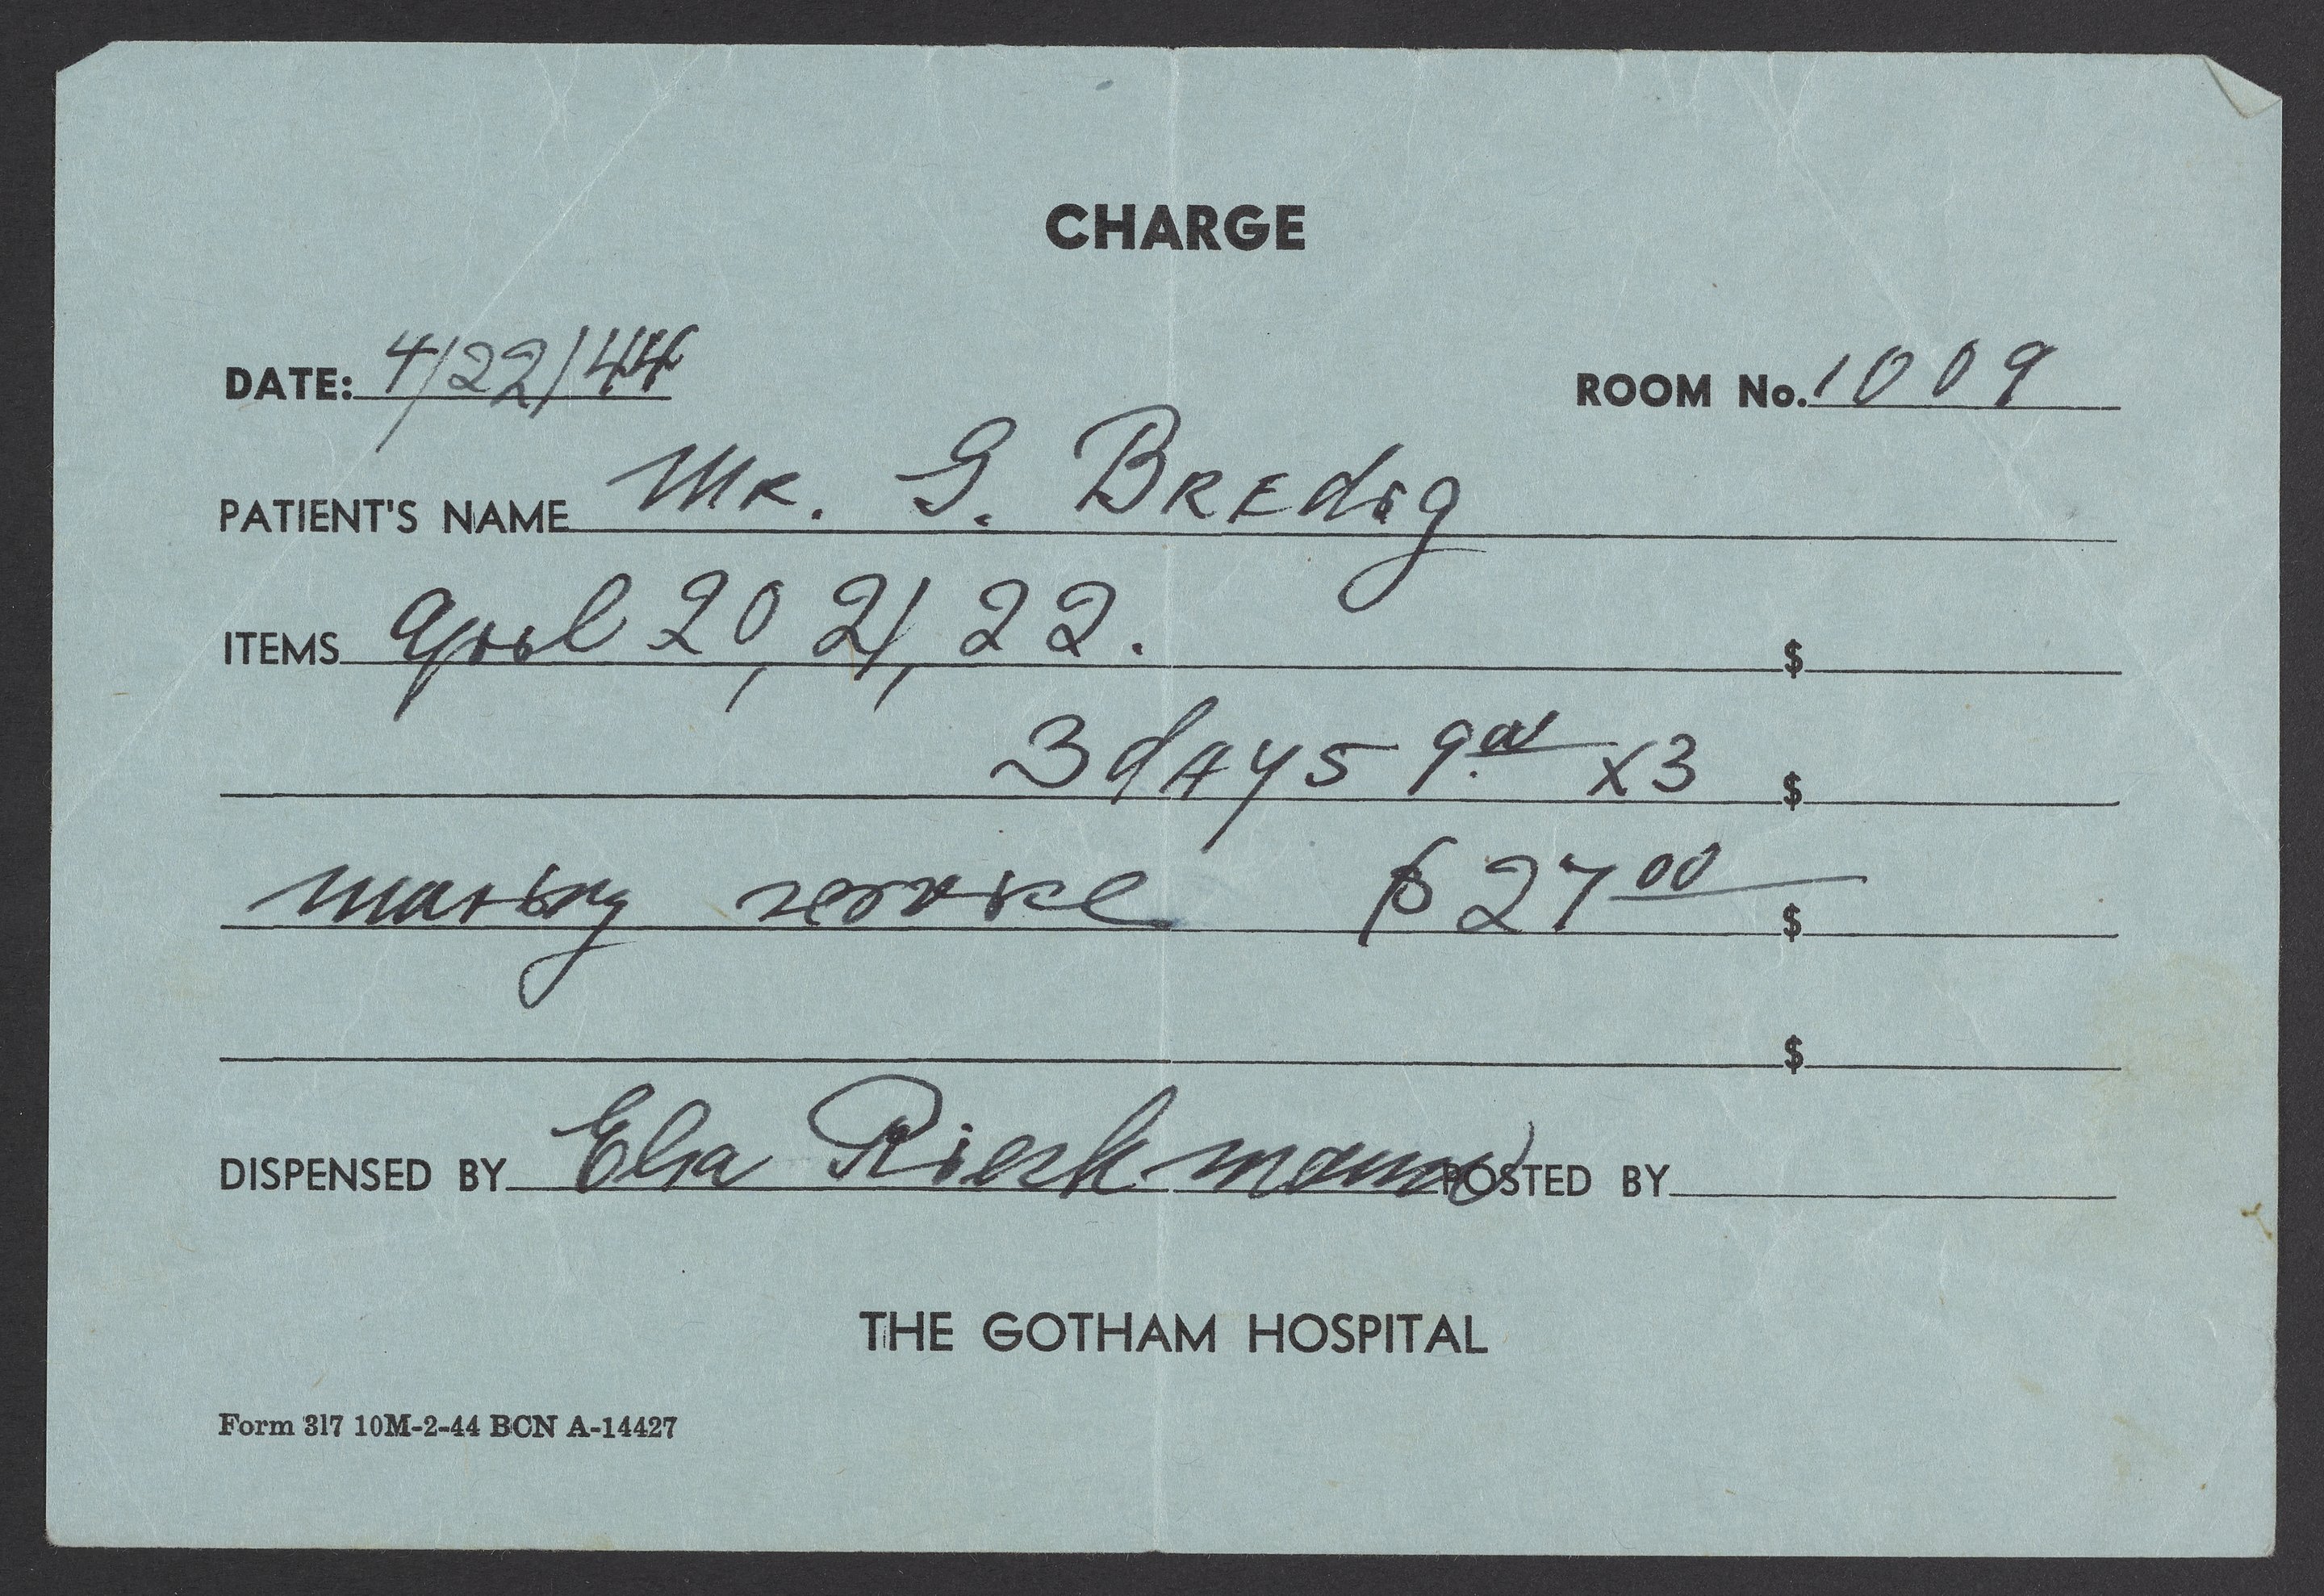 CHARGE
DATE: 4/22/44 ROOM No. 1009
PATIENT'S NAME Mr. G. Bredig
ITEMS April 20, 21, 22. $
3 days 9.00 x3 $
service $27 00 $
$
DISPENSED BY Elsa POSTED BY
THE GOTHAM HOSPITAL
Form 317 10M-2-44 BCN A-14427